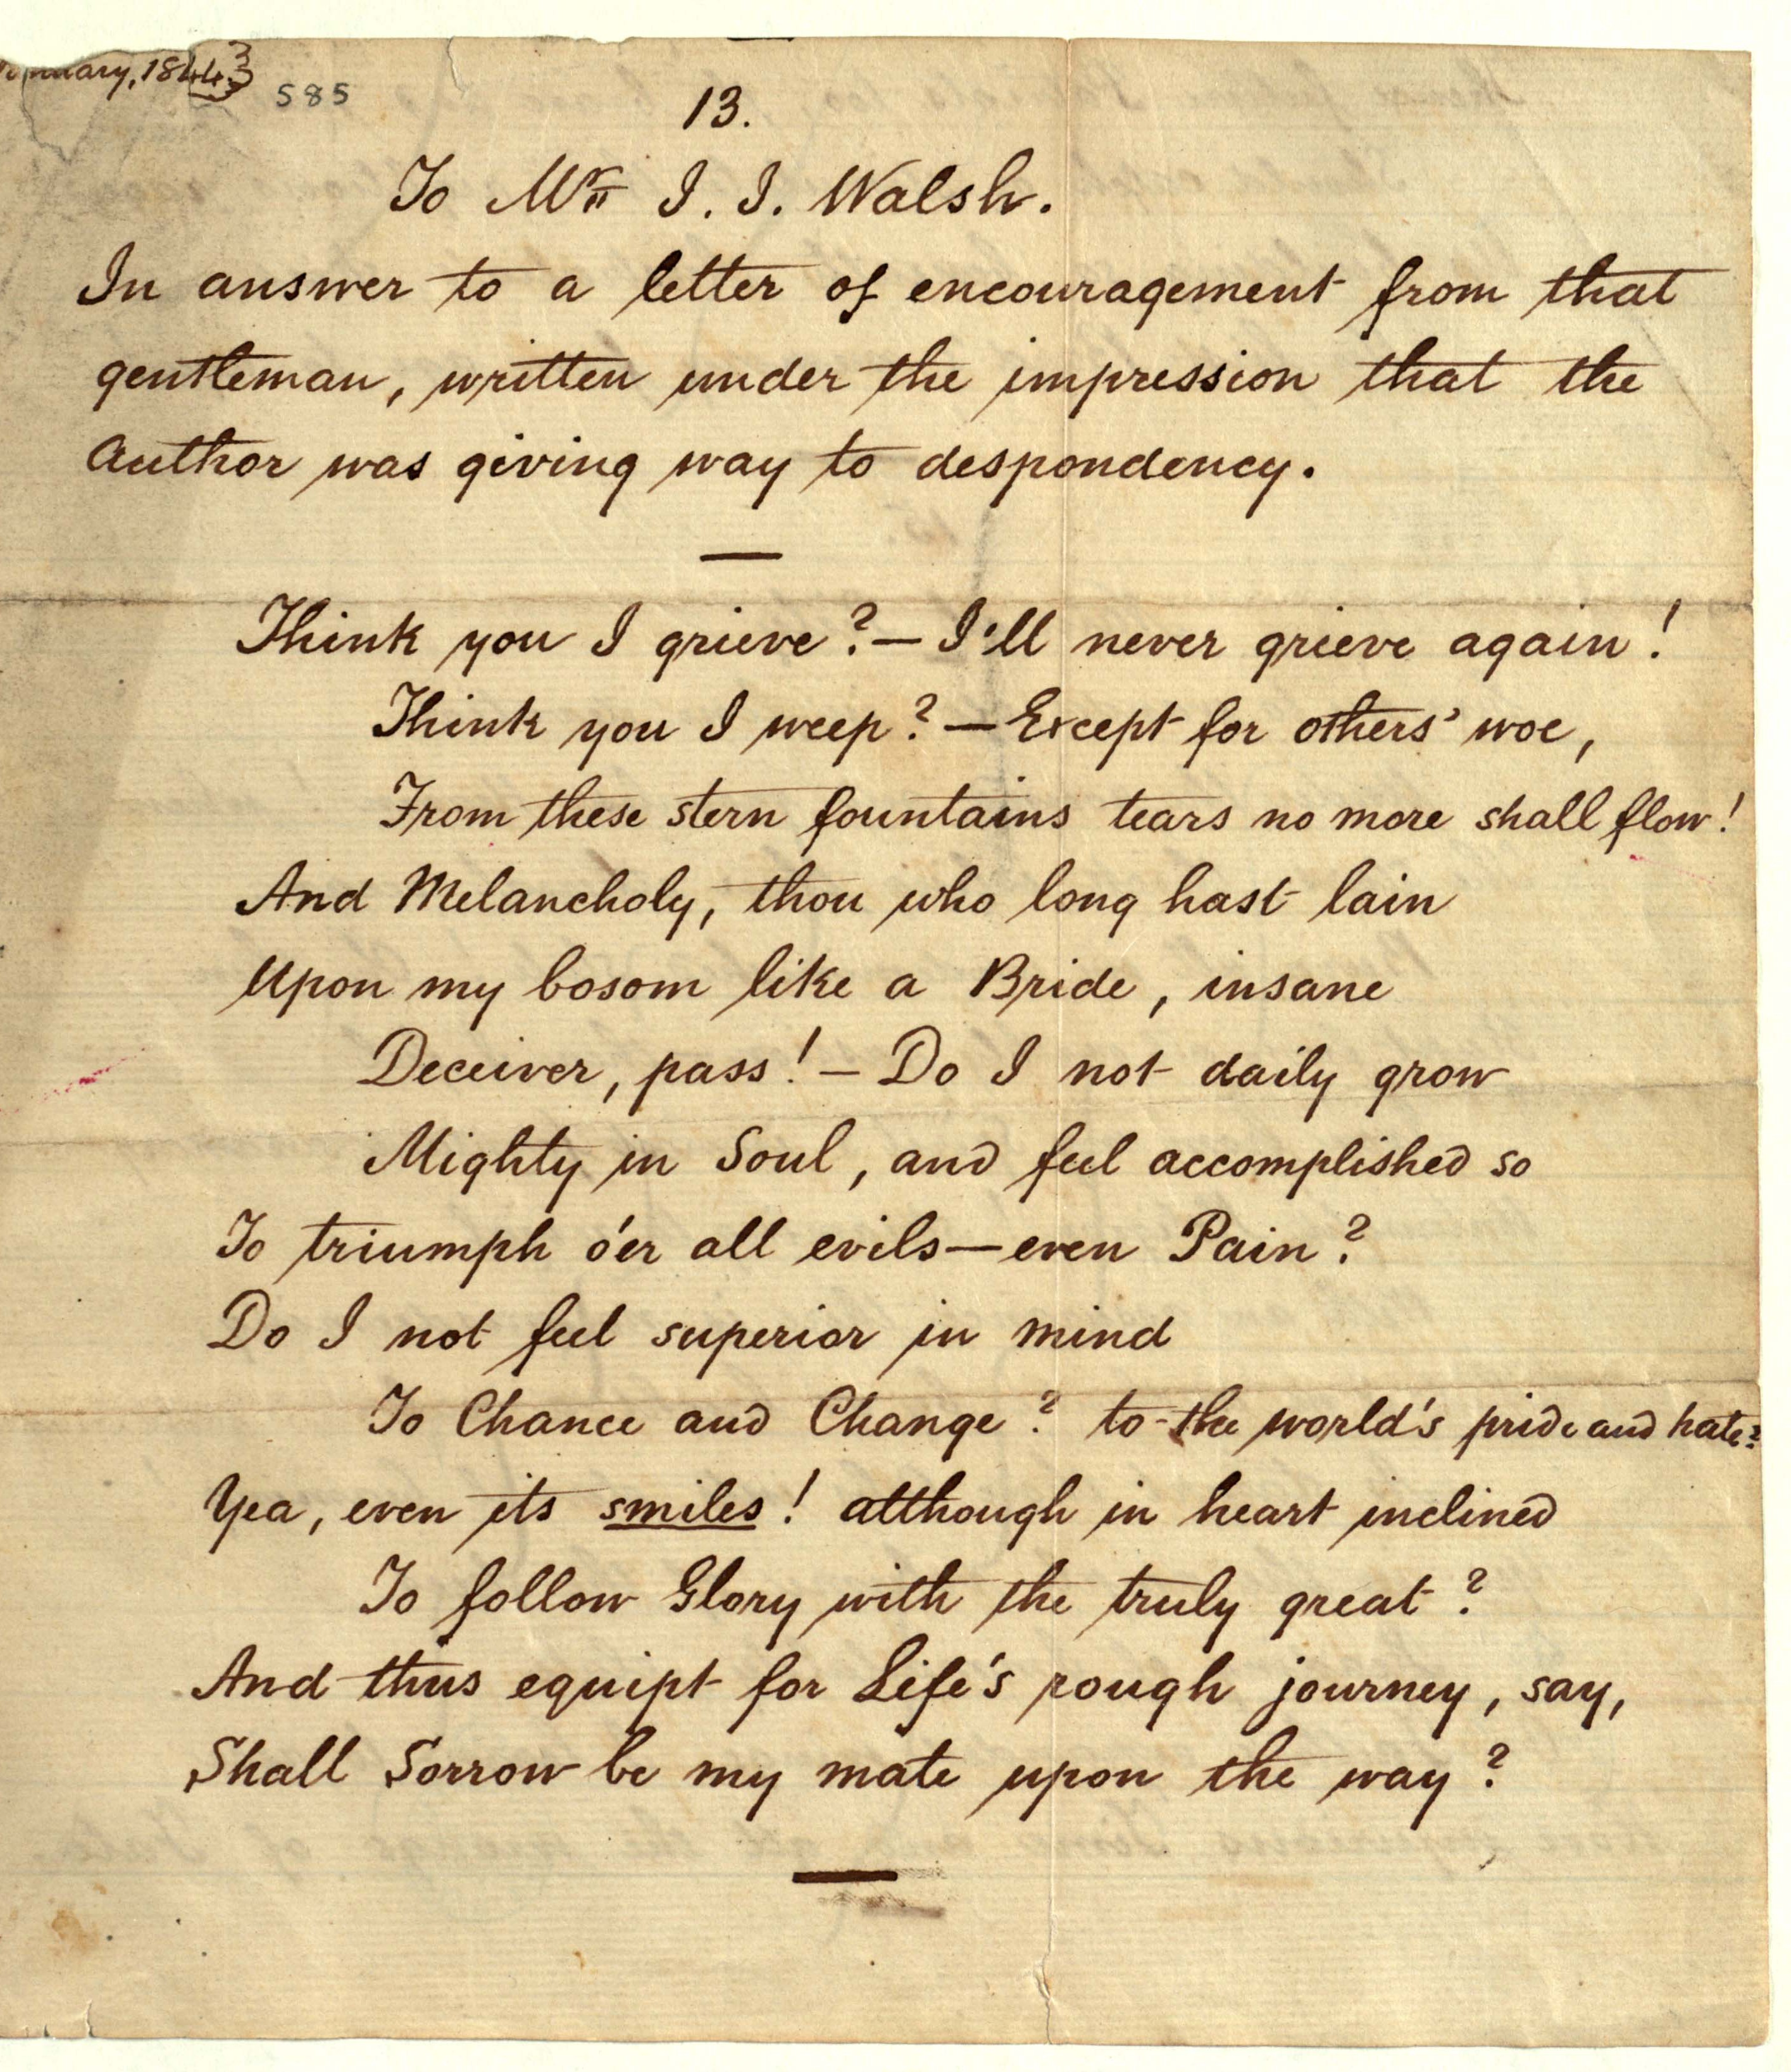 1843
585
13.
To Mr. J. J. Walsh.
In answer to a letter of encouragement from that
gentleman, written under the impression that the
Author was giving way to despondency.
Think you I grieve?—I'll never grieve again!
Think you I weep?—Except for others' woe,
From these stern fountains tears no more shall flow!
And Melancholy, thou who long hast lain
Upon my bosom like a Bride, insane
Deceiver, pass!—Do I not daily grow
Mighty in Soul, and feel accomplished so
To triumph o'er all evils—even Pain?
Do I not feel superior in mind
To Chance and Change? to the world's pride and hate?
Yea, even its smiles! although in heart inclined
To follow Glory with the truly great?
And thus equipt for Life's rough journey, say,
Shall Sorrow be my mate upon the way?